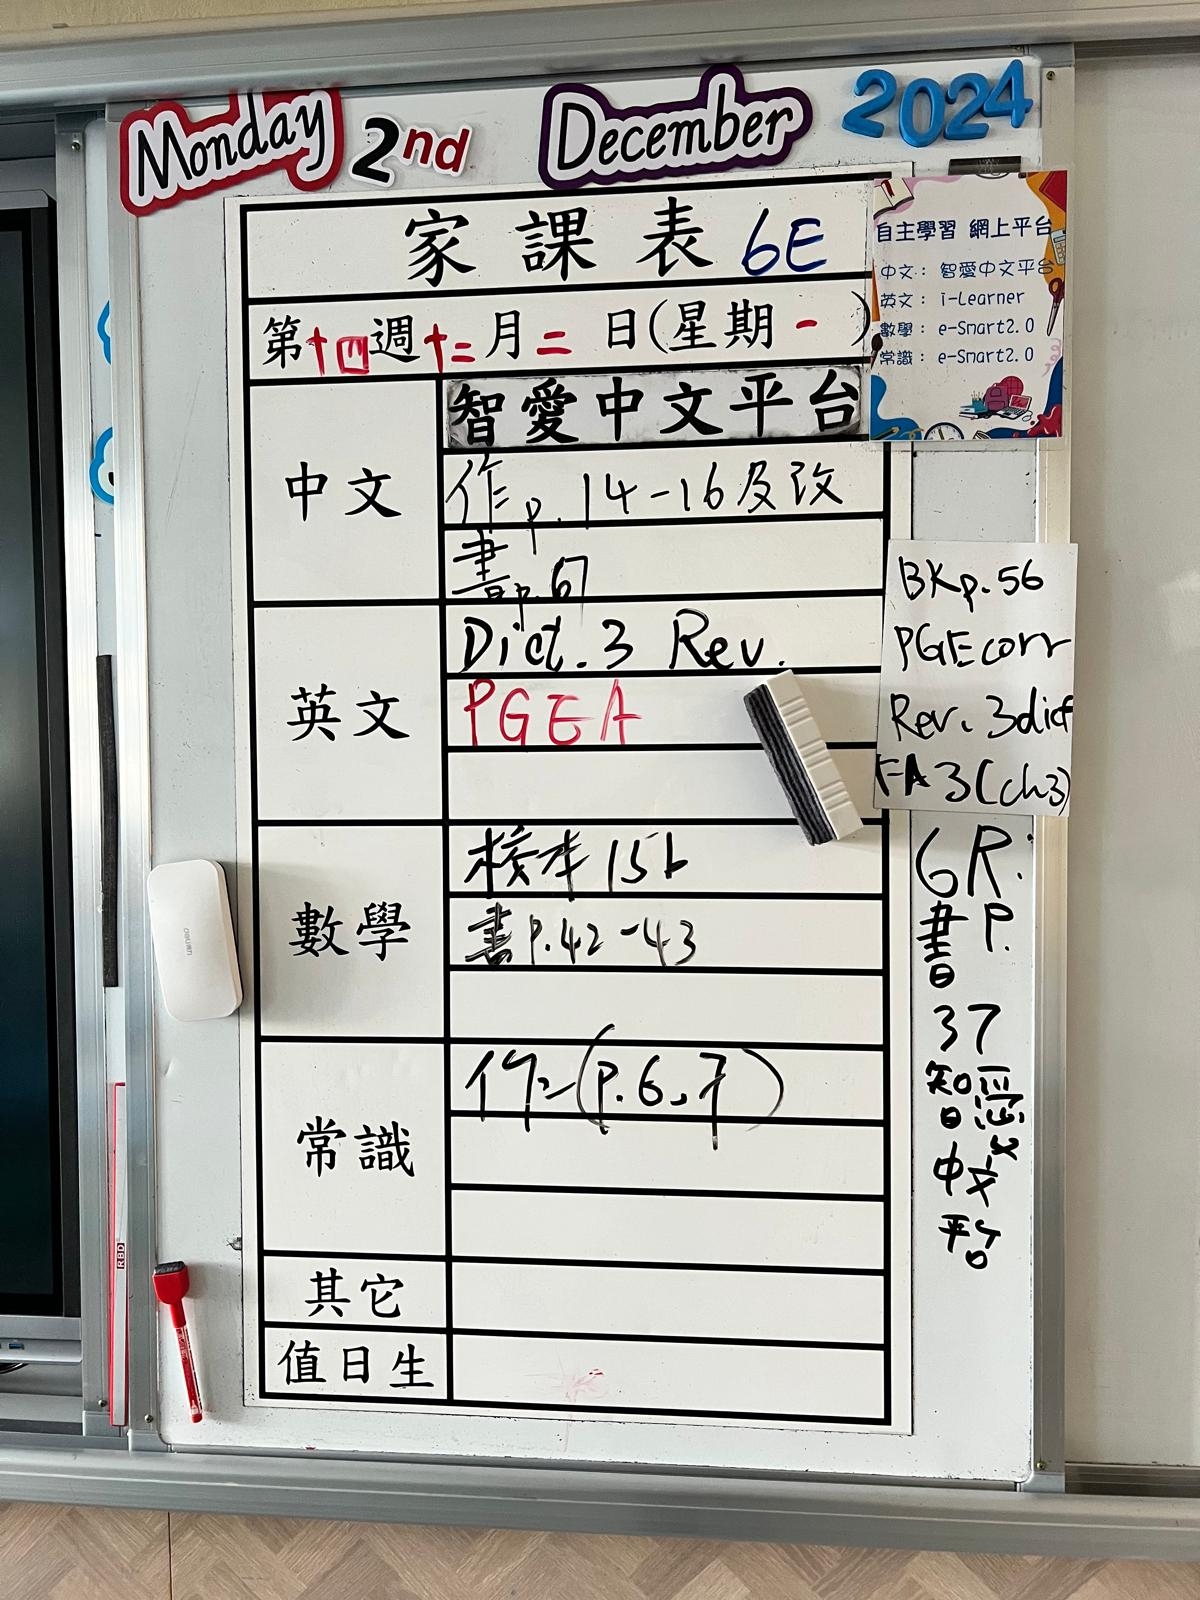 Monday 2nd December 2024
家課表 6E
第十四週十二月二日(星期一)
中文
智愛中文平台
作p.14-16及改
書p.67
英文
Dict. 3 Rev.
PGEA
數學
校本15b
書P.42-43
常識
作二(P.6,7)
其它
值日生
自主學習 網上平台
中文: 智愛中文平台
英文: i-Learner
數學: e-Smart2.0
常識: e-Smart2.0
BKp.56
PGE corr
Rev. 3dict
FA3(ch3)
6R:
書P.
37
智愛
中文
平台
deli
RBD